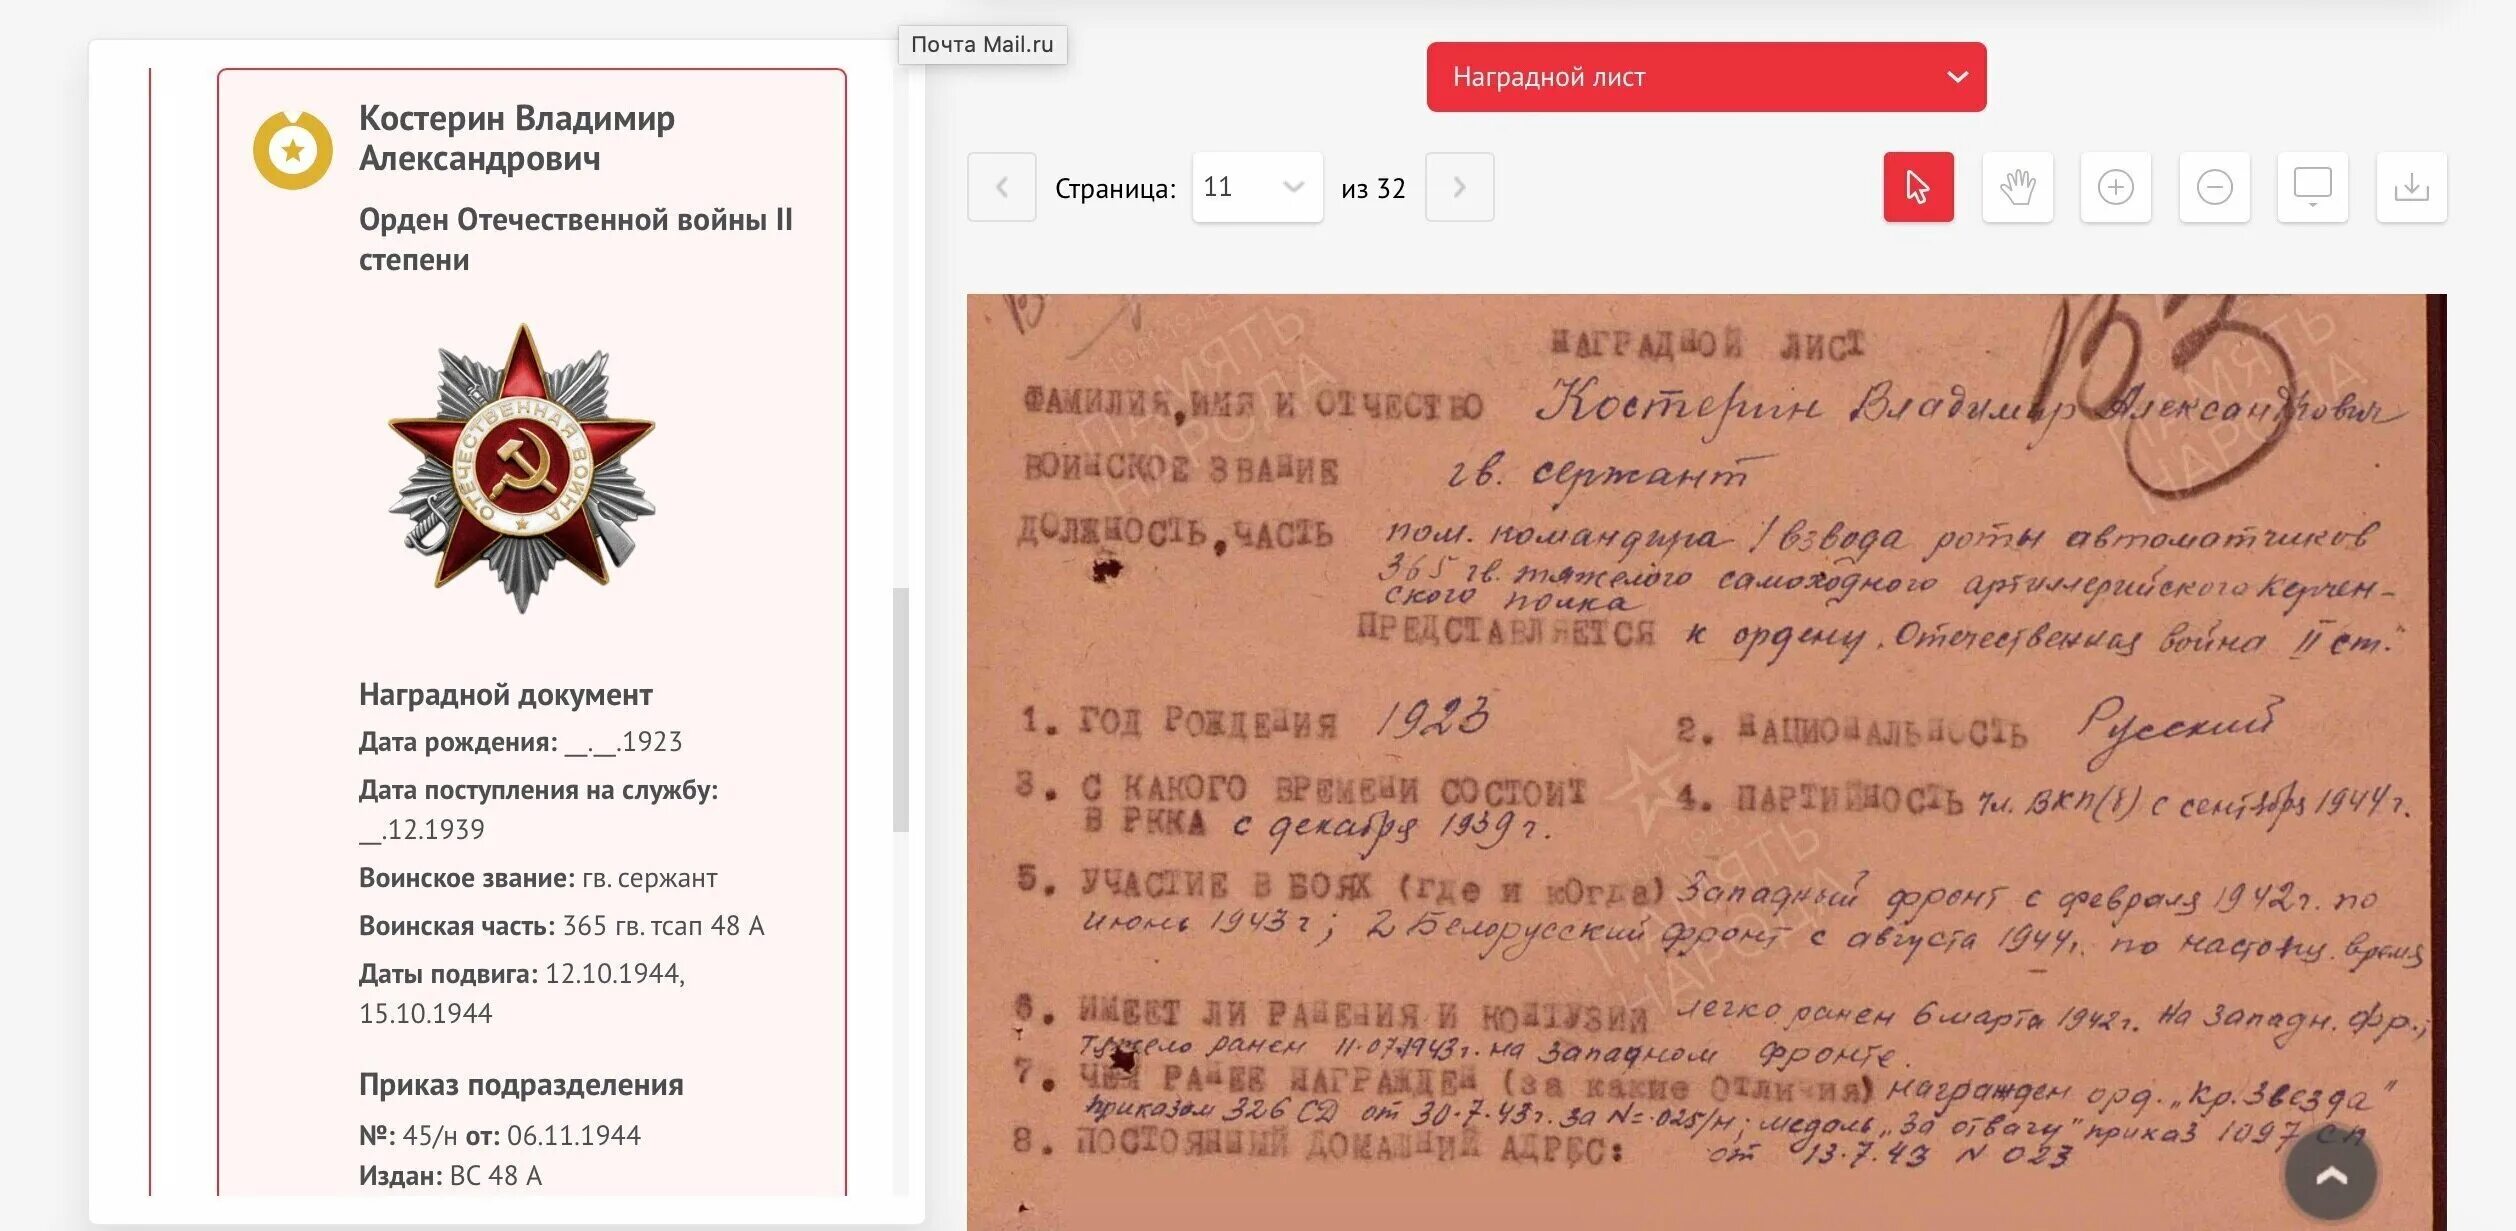 Почта Mail.ru
Костерин Владимир
Александрович
Орден Отечественной войны II
степени
ОТЕЧЕСТВЕННАЯ ВОЙНА
Наградной документ
Дата рождения: __.__.1923
Дата поступления на службу:
__.12.1939
Воинское звание: гв. сержант
Воинская часть: 365 гв. тсап 48 А
Даты подвига: 12.10.1944,
15.10.1944
Приказ подразделения
№: 45/н от: 06.11.1944
Издан: ВС 48 А
Наградной лист
Страница: 11 из 32
НАГРАДНОЙ ЛИСТ
ФАМИЛИЯ, ИМЯ И ОТЧЕСТВО Костерин Владимир Александрович
ВОИНСКОЕ ЗВАНИЕ гв. сержант
ДОЛЖНОСТЬ, ЧАСТЬ пом. командира 1 взвода роты автоматчиков
365 гв. тяжелого самоходного артиллерийского Керчен-
ского полка
ПРЕДСТАВЛЯЕТСЯ к ордену „Отечественная война II ст."
1. ГОД РОЖДЕНИЯ 1923 2. НАЦИОНАЛЬНОСТЬ Русский
3. С КАКОГО ВРЕМЕНИ СОСТОИТ 4. ПАРТИЙНОСТЬ чл. ВКП(б) с сентября 1944г.
В РККА с декабря 1939г.
5. УЧАСТИЕ В БОЯХ (где и кОгда) Западный фронт с февраля 1942г. по
июнь 1943г; 2 Белорусский фронт с августа 1944г. по настоящ. время
6. ИМЕЕТ ЛИ РАНЕНИЯ И КОНТУЗИИ легко ранен 6 марта 1942г. на Западн. фр.;
тяжело ранен 11.07.1943г. на Западном фронте.
7. ЧЕМ РАНЕЕ НАГРАЖДЕН (за какие Отличия) награжден орд. „Кр. Звезда"
приказом 326 СД от 30.7.43г. за N=025/н; медаль „За отвагу" приказ 1097 сп
8. ПОСТОЯННЫЙ ДОМАШНИЙ АДРЕС: от 13.7.43 N 023
1941-1945
ПАМЯТЬ
НАРОДА
ПАМЯТЬ
НАРОДА
1941-1945
ПАМЯТЬ
НАРОДА